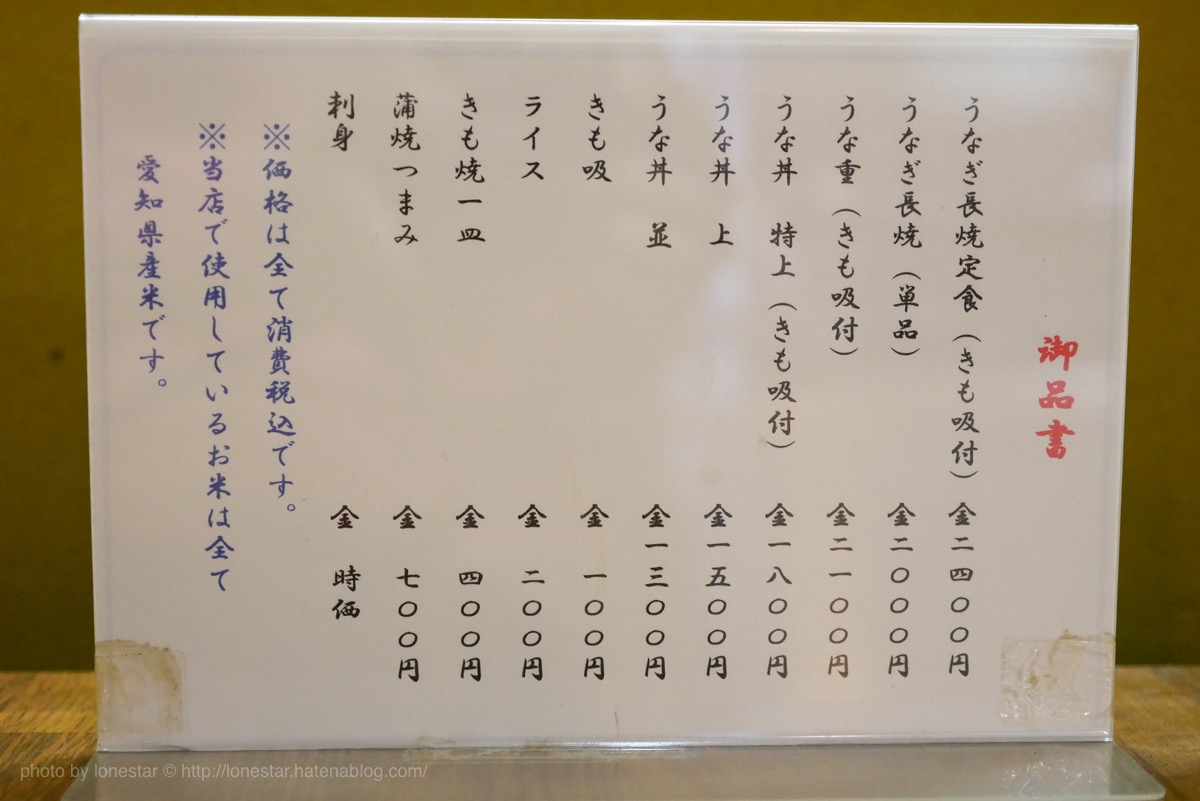 御品書
うなぎ長焼定食（きも吸付）金二四〇〇円
うなぎ長焼（単品）金二〇〇〇円
うな重（きも吸付）金二一〇〇円
うな丼　特上（きも吸付）金一八〇〇円
うな丼　上　金一五〇〇円
うな丼　並　金一三〇〇円
きも吸　金　一〇〇円
ライス　金　二〇〇円
きも焼一皿　金　四〇〇円
蒲焼つまみ　金　七〇〇円
刺身　金　時価
※価格は全て消費税込です。
※当店で使用しているお米は全て
愛知県産米です。
photo by lonestar © http://lonestar.hatenablog.com/